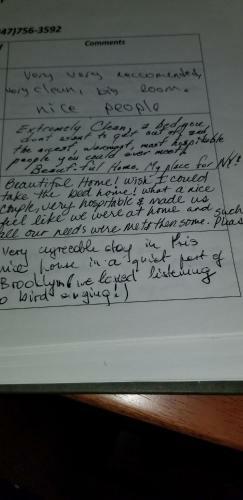 47)756-3592
Comments
Very very reccomended,
very clean, big room.
nice people
Extremely Clean, a bed you
dont want to get out of, and
the nicest, warmest, most hospitable
people you could ever meet.
Beautiful Home. My place for NY!
Beautiful Home! Wish I could
take the bed home! What a nice
couple, very hospitable & made us
feel like we were at home and such
all our needs were met & then some.
Very agreeable stay in this
nice house in a quiet part of
Brooklyn (we loved listening
to bird singing!)